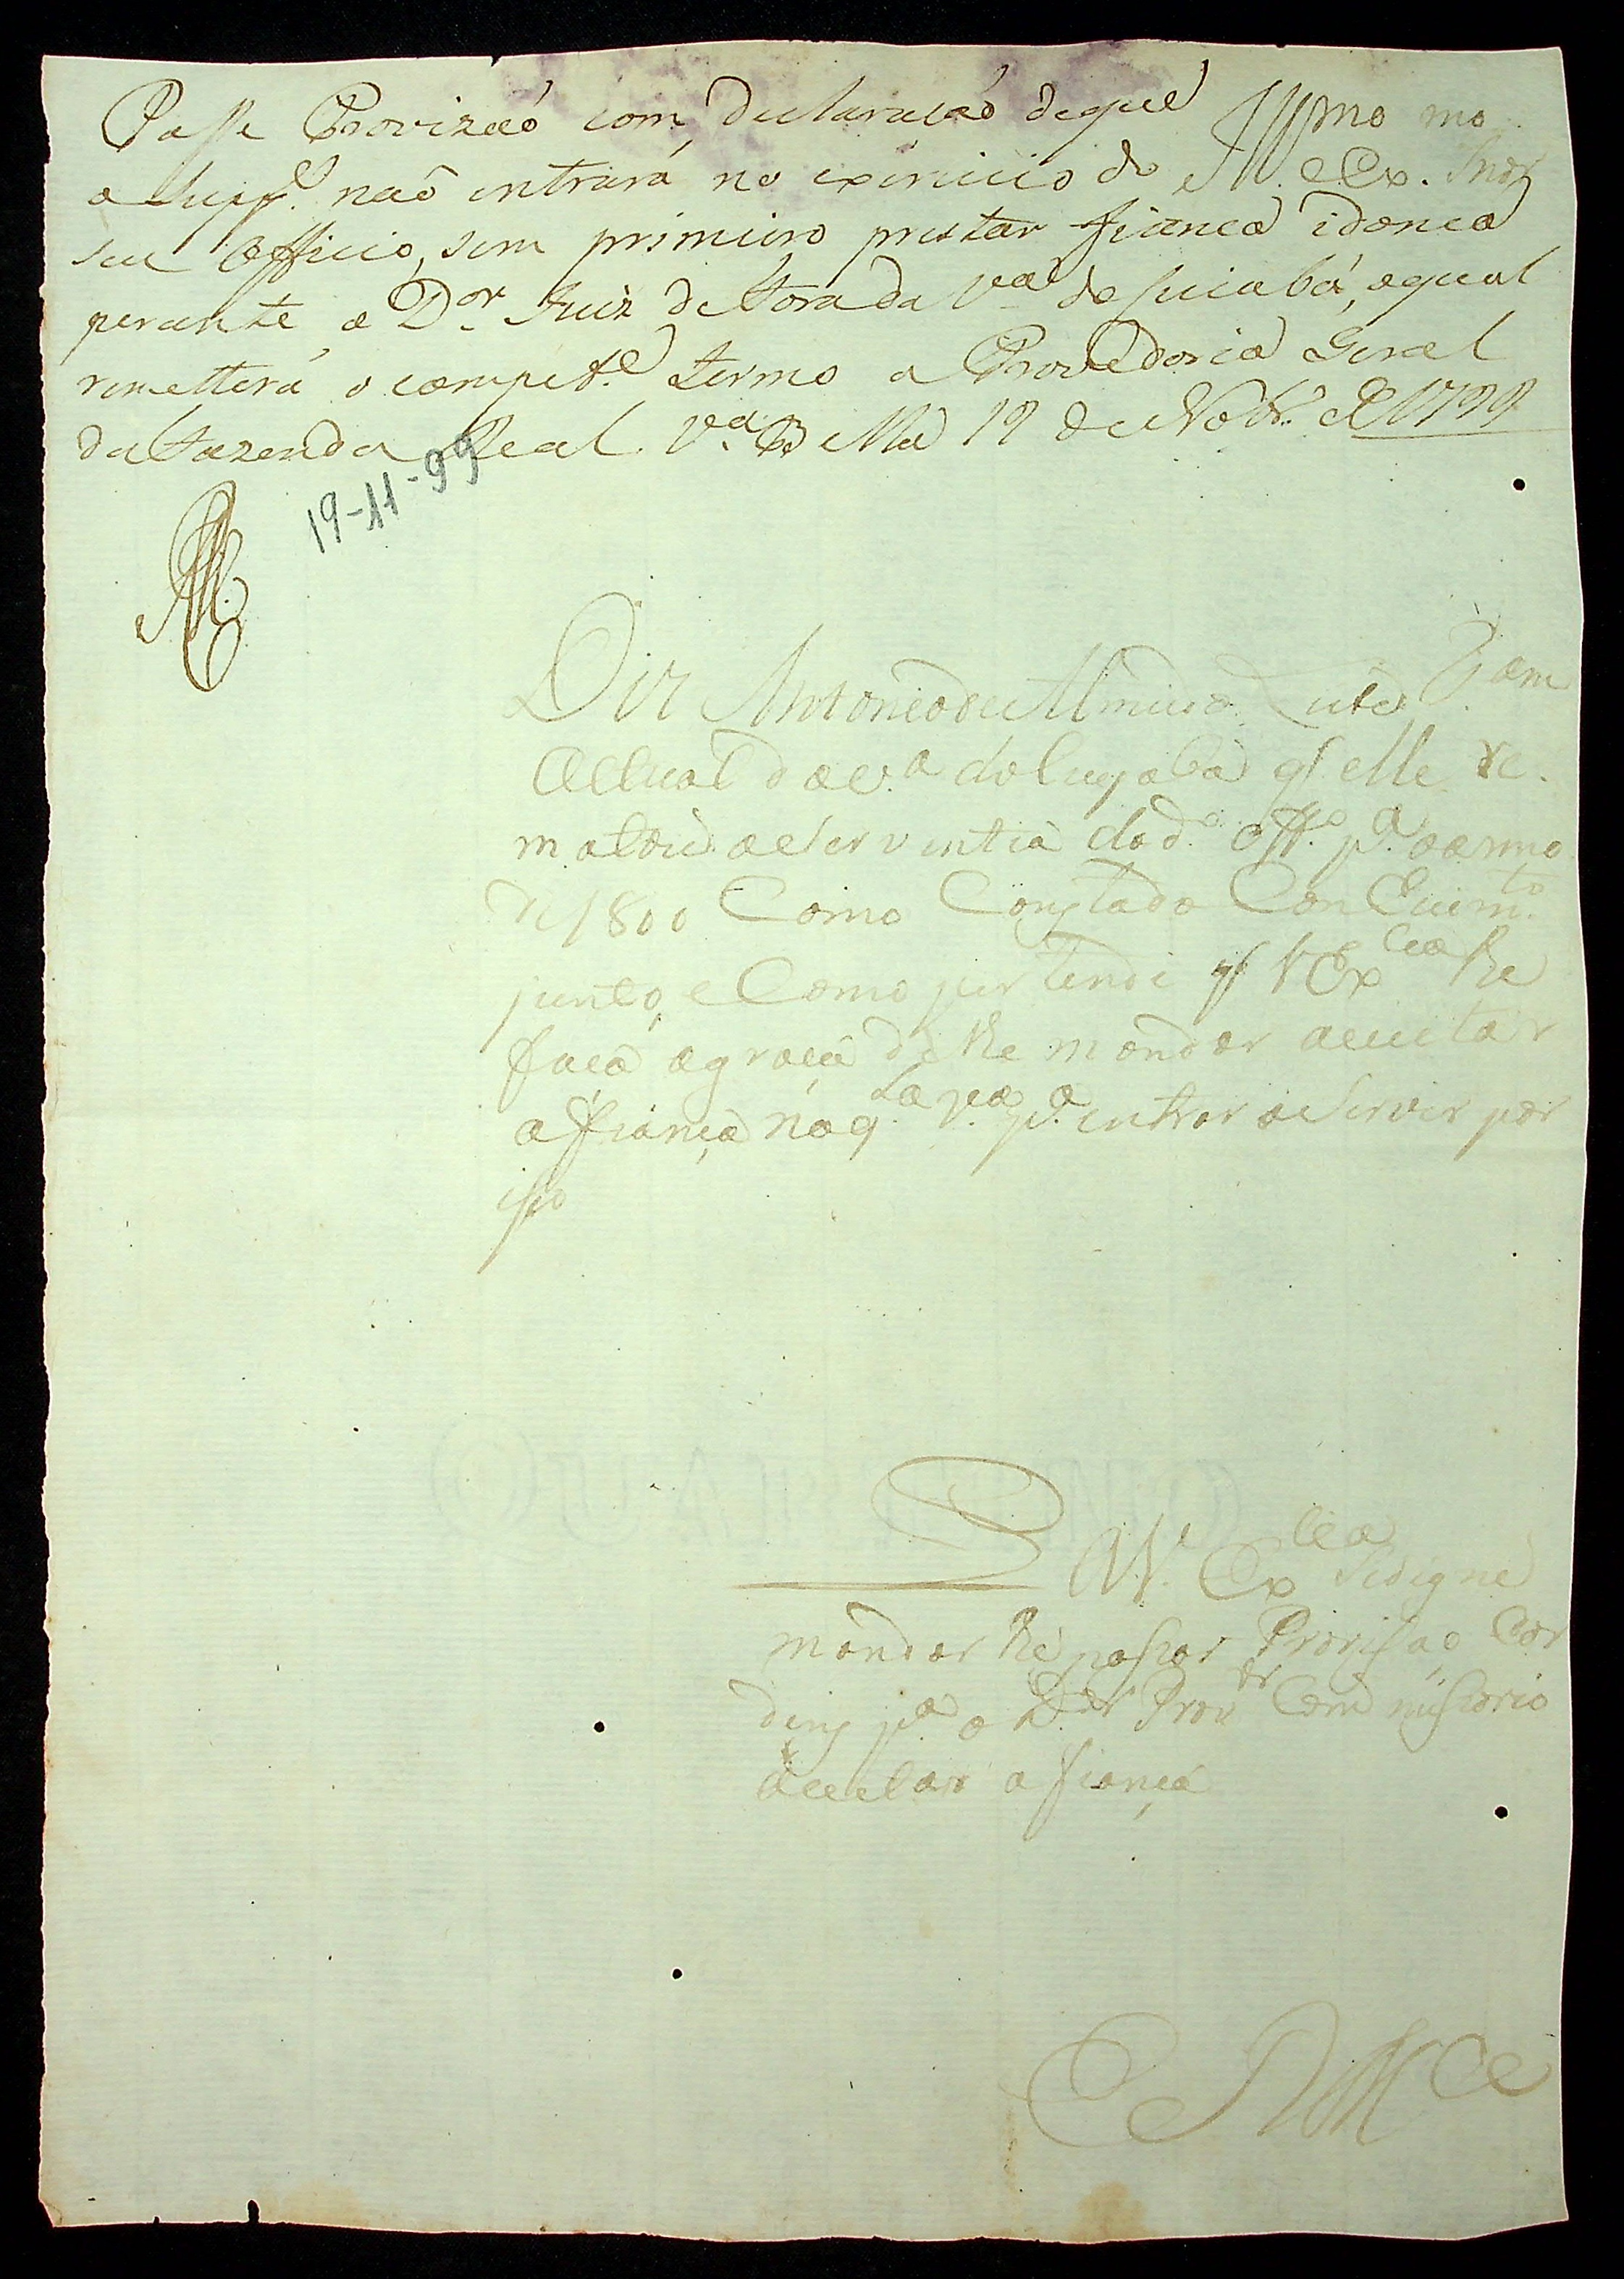 Passe Provizaõ com declaraçaõ deque
o Supp.e naõ entrará no exercicio do
seu Officio, sem primeiro prestar fiança idonea
perante o D.or Juiz de Fora da V.a do Cuiabá, o qual
remetterá o compet.e termo a Provedoria Geral
da Fazenda Real. V.a Bella 19 de Novbr.o de 1799
19-11-99
Ill.mo e Ex.mo Snor
Diz Antonio de Almeida
Actual da V.a do Cuyabá q' elle re-
matou a Serventia do d.o Off.o p.a o anno
de 1800 Como Consta do Conhecim.to
junto, e Como pertende q' V Ex.cia lhe
faça a graça de lhe mandar aceitar
a fiança naq.la V.a p.a entrar a Servir por
isso
P A V. Ex.cia Se digne
mandar lhe passar Provisaõ Cor
dens p.a o D.or Prov.dor Commissario
aceitar a fiança
E R M.ce